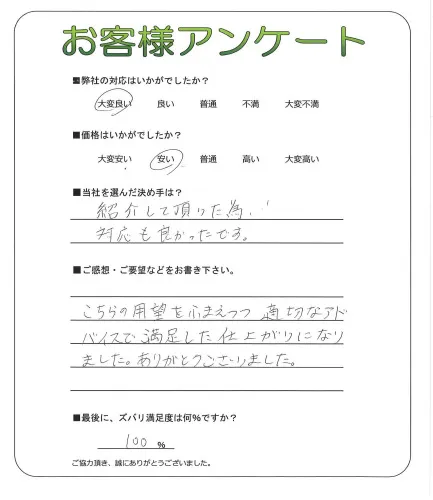 お客様アンケート
■弊社の対応はいかがでしたか？
大変良い 良い 普通 不満 大変不満
■価格はいかがでしたか？
大変安い 安い 普通 高い 大変高い
■当社を選んだ決め手は？
紹介して頂けた為、
対応も良かったです。
■ご感想・ご要望などをお書き下さい。
こちらの用望をふまえつつ 適切なアド
バイスで満足した仕上がりになり
ました。ありがとうございました。
■最後に、ズバリ満足度は何%ですか？
100 %
ご協力頂き、誠にありがとうございました。